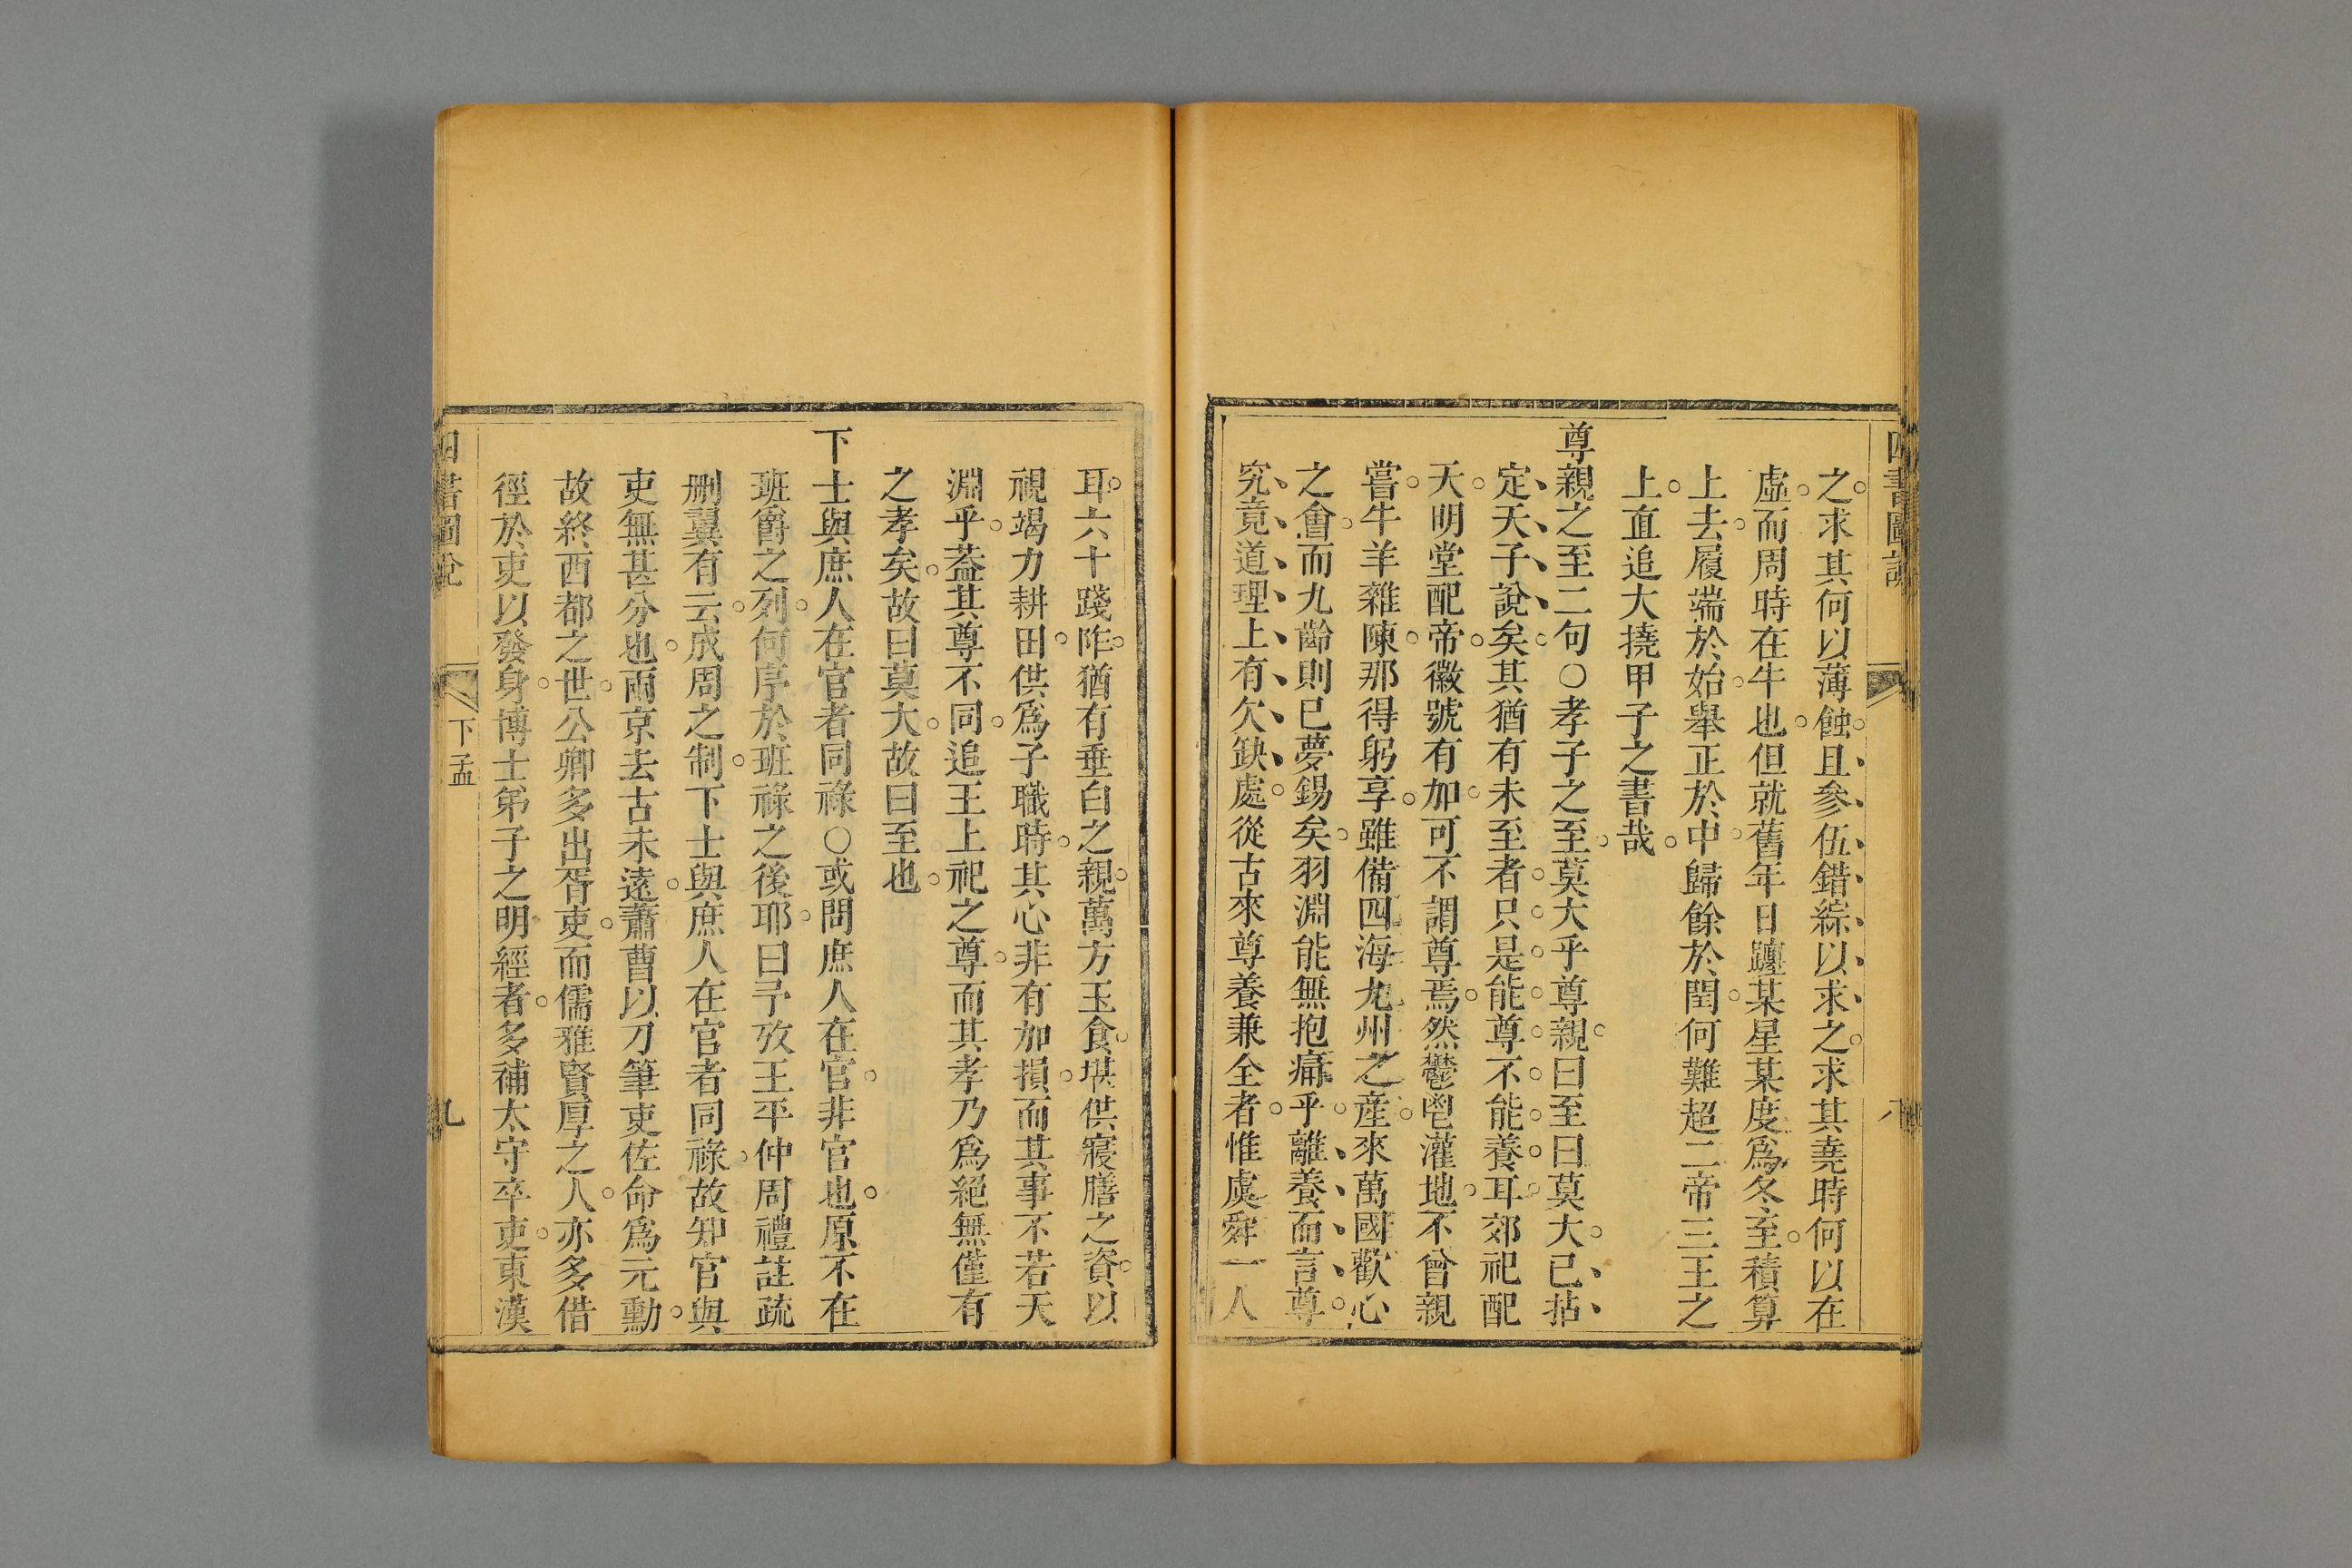 四書圖說
之求其何以薄蝕且參伍錯綜以求之求其堯時何以在
虛而周時在牛也但就舊年日躔某星某度爲冬至積算
上去履端於始舉正於中歸餘於閏何難超二帝三王之
上直追大撓甲子之書哉
尊親之至二句○孝子之至莫大乎尊親曰至曰莫大已拈
定天子說矣其猶有未至者只是能尊不能養耳郊祀配
天明堂配帝徽號有加可不謂尊焉然鬱鬯灌地不曾親
嘗牛羊雜陳那得躬享雖備四海九州之產來萬國歡心
之會而九齡則已夢錫矣羽淵能無抱痛乎離養而言尊
究竟道理上有欠缺處從古來尊養兼全者惟虞舜一人
耳六十踐阼猶有垂白之親萬方玉食堪供寢膳之資以
視竭力耕田供爲子職時其心非有加損而其事不若天
淵乎葢其尊不同追王上祀之尊而其孝乃爲絕無僅有
之孝矣故曰莫大故曰至也
下士與庶人在官者同祿○或問庶人在官非官也原不在
班爵之列何序於班祿之後耶曰予攷王平仲周禮註疏
刪翼有云成周之制下士與庶人在官者同祿故知官與
吏無甚分也兩京去古未遠蕭曹以刀筆吏佐命爲元勳
故終西都之世公卿多出胥吏而儒雅賢厚之人亦多借
徑於吏以發身博士弟子之明經者多補太守卒吏東漢
四書圖說
下孟
九